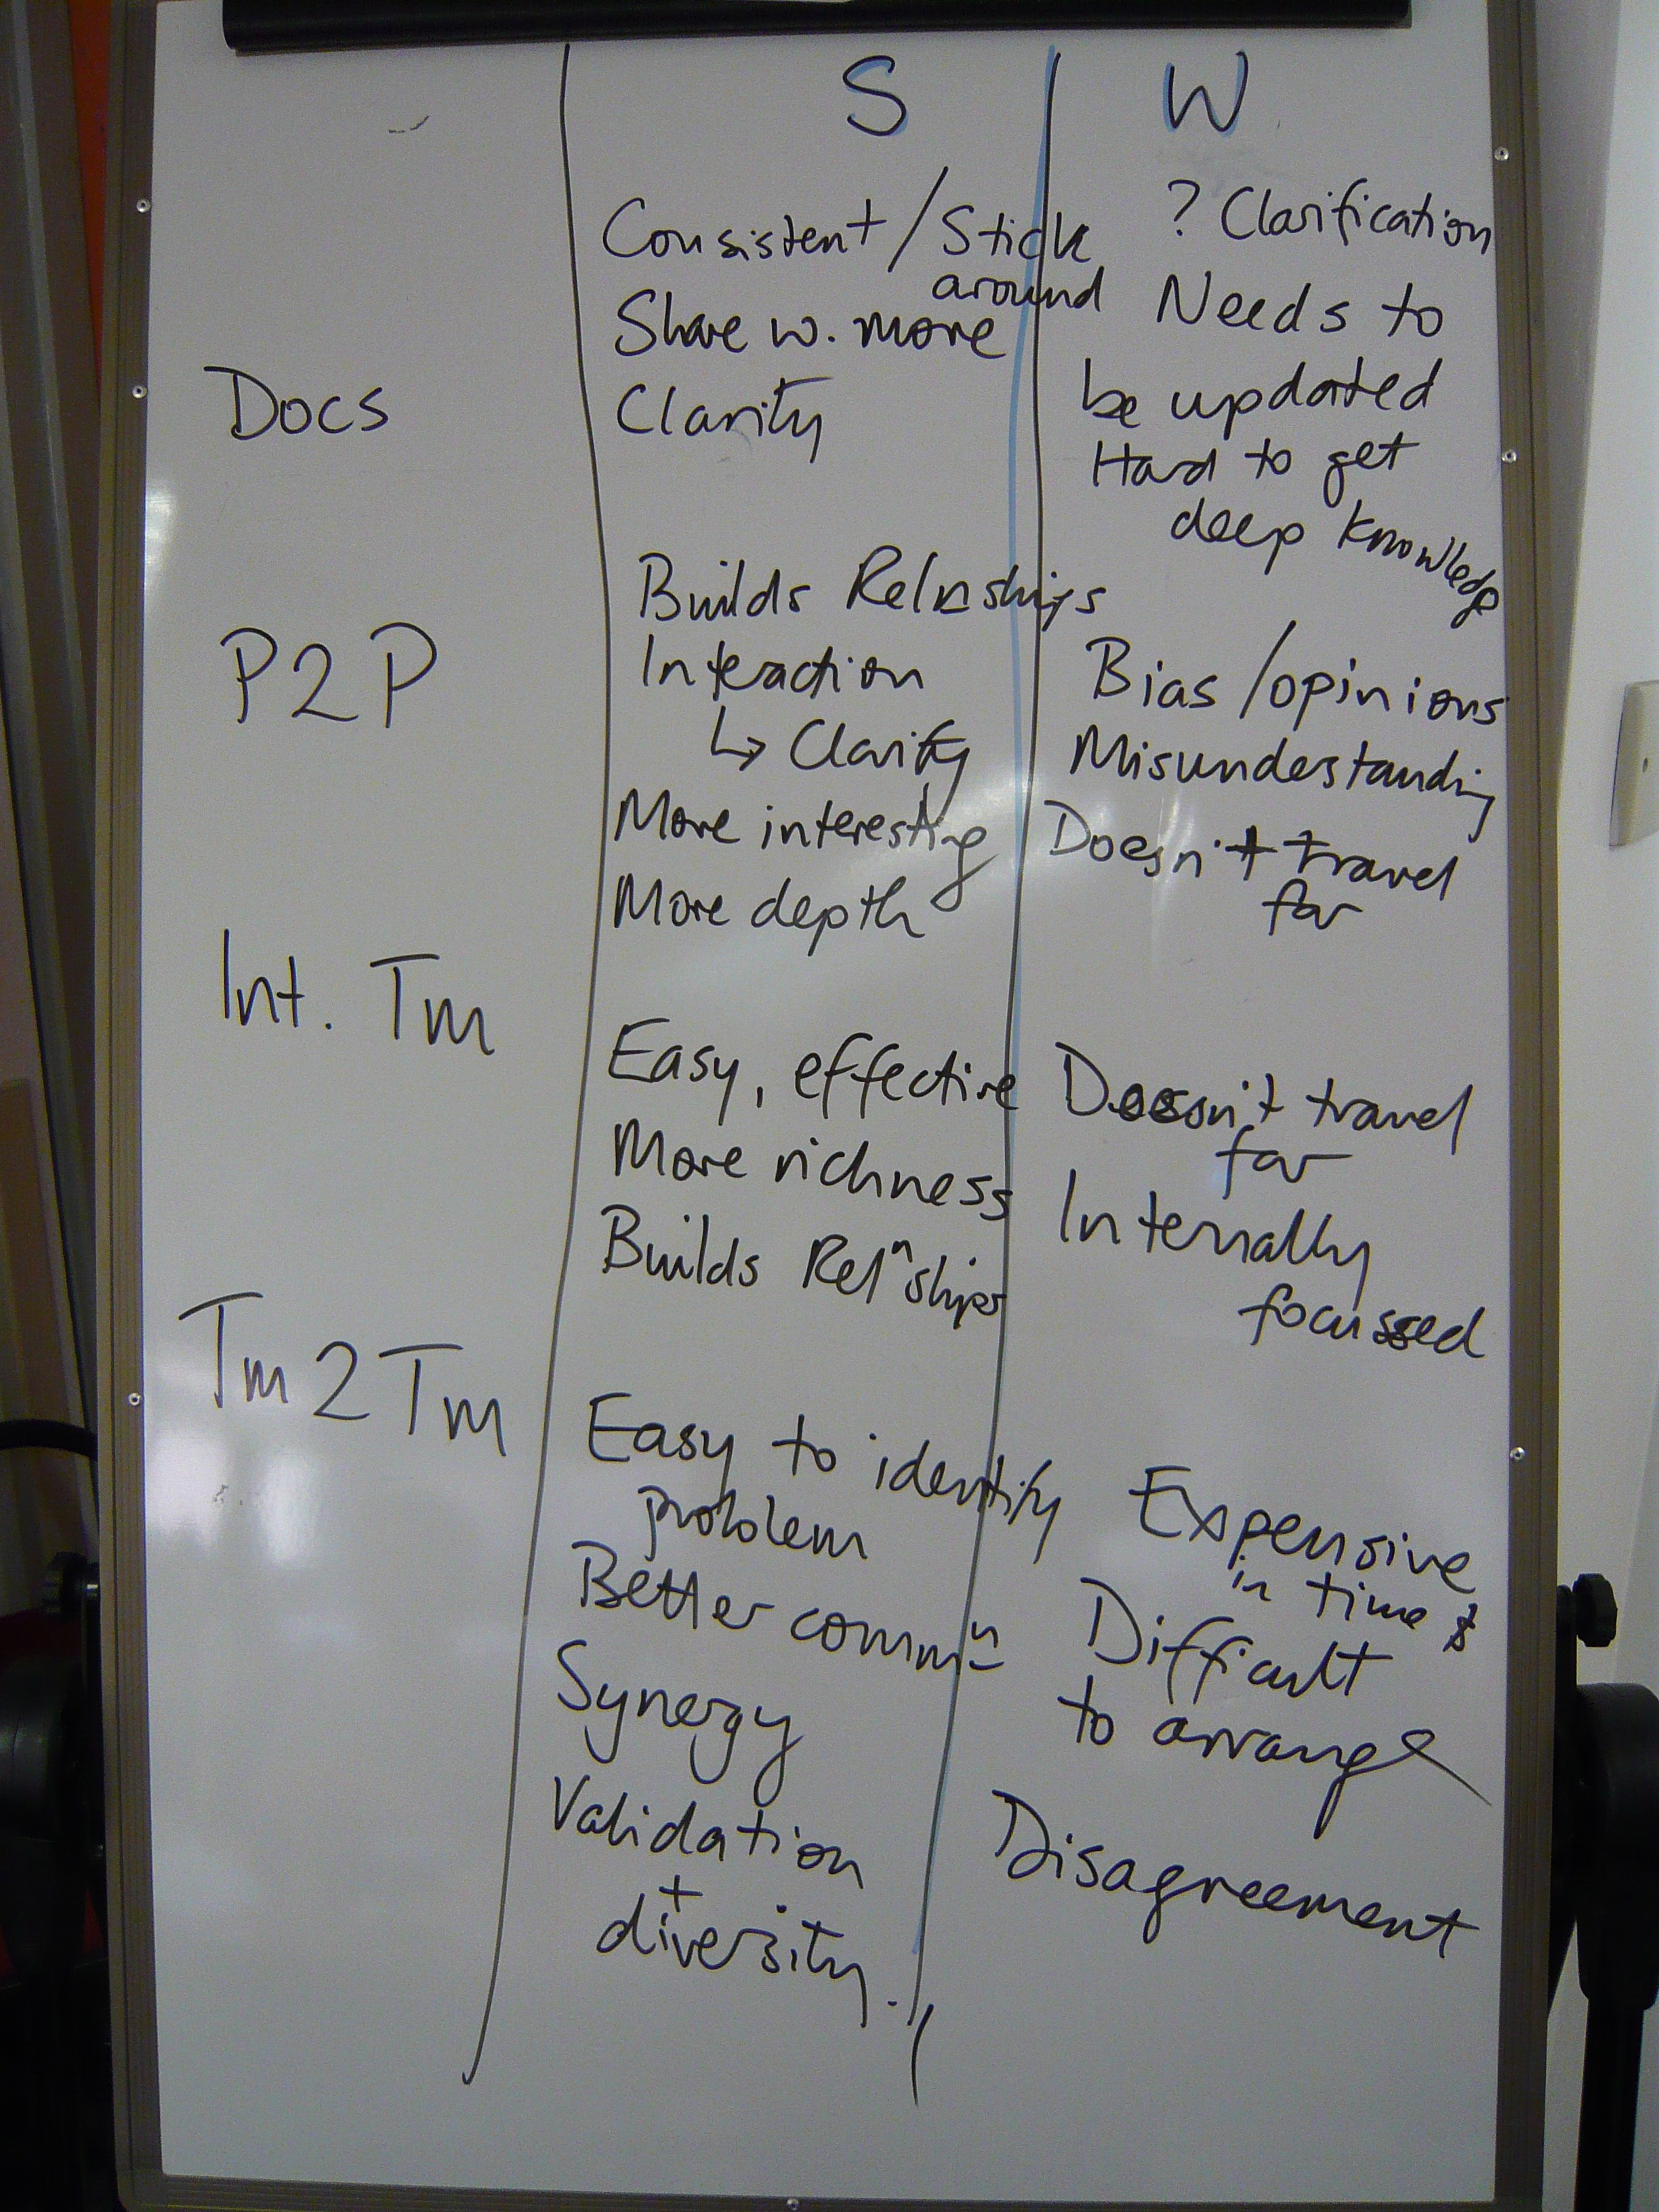 S W
Consistent / Stick
around
Share w. more
Docs
Clarity
? Clarification
Needs to
be updated
Hard to get
deep knowledge
P2P
Builds Relnships
Interaction
↳ Clarity
More interesting
More depth
Bias / opinions
Misunderstanding
Doesn't travel
far
Int. Tm
Easy, effective
More richness
Builds Relⁿships
Doesn't travel
far
Internally
focussed
Tm 2 Tm
Easy to identify
problem
Better commⁿ
Synergy
Validation
+
diversity.
Expensive
in time $
Difficult
to arrange
Disagreement